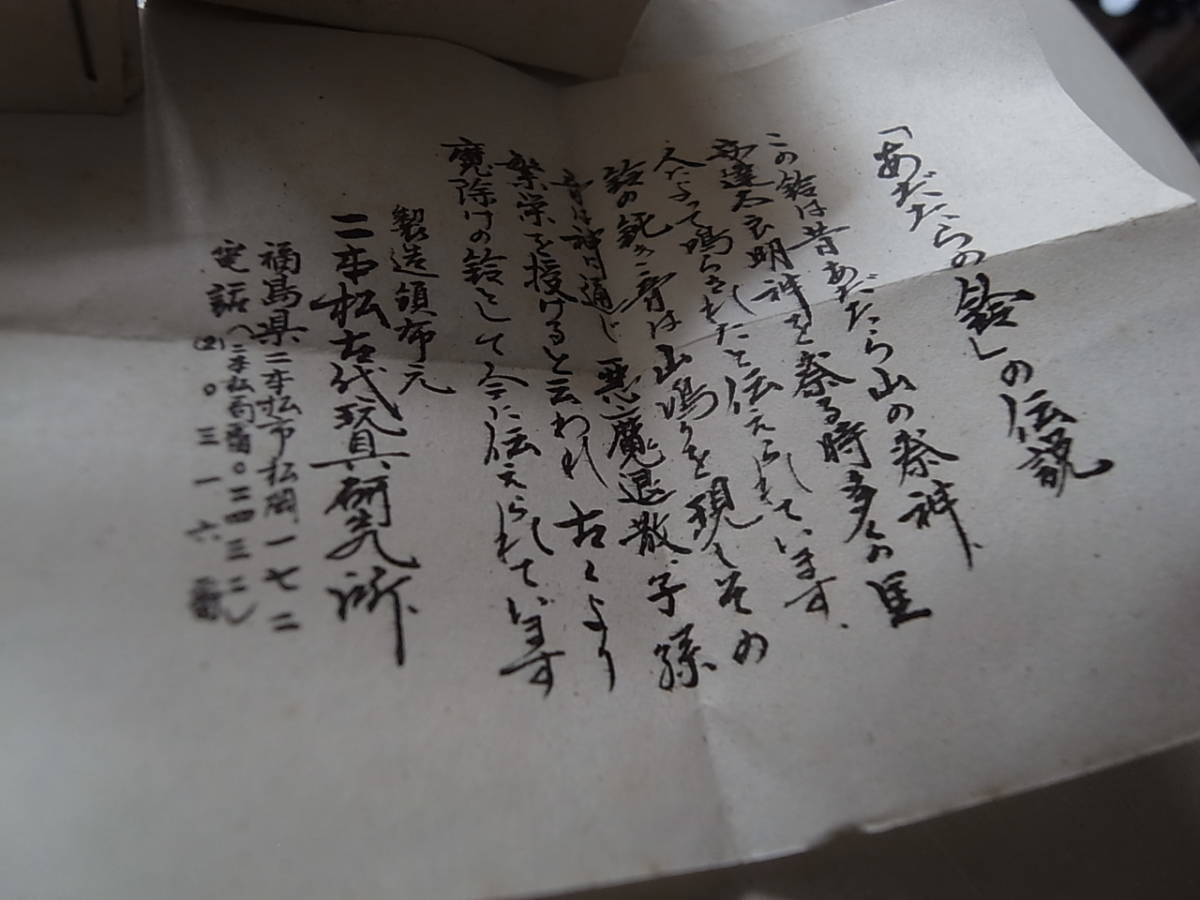 「あだたらの鈴」の伝説
この鈴は昔あだたら山の祭神、
安達太良明神を祭る時多くの里
人によって鳴らされたと伝えられています.
鈴の鈍き音は山鳴りを現しその
音は神に通じ悪魔退散、子孫
繁栄を授けると云われ古くより
魔除けの鈴として今に伝えられています
製造頒布元
二本松古代玩具研究所
福島県二本松市松岡一七二
電話(二本松局番〇二四三二)
(2)〇三一六番